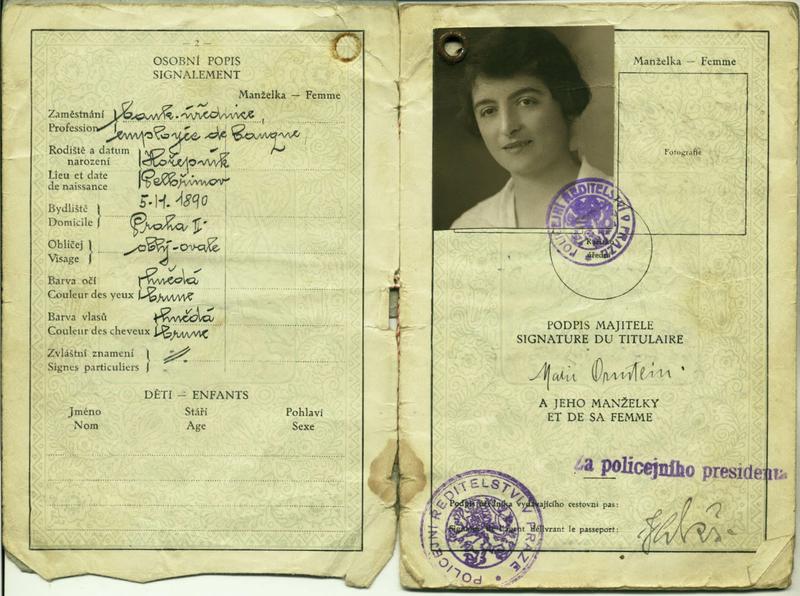 — 2 —
OSOBNÍ POPIS
SIGNALEMENT
Manželka — Femme
Zaměstnání bank. úřednice,
Profession employée de banque
Rodiště a datum narození Hořepník
Lieu et date de naissance Pelhřimov
5. 1890
Bydliště
Domicile Praha II.
Obličej
Visage oblý - ovale
Barva očí hnědá
Couleur des yeux brune
Barva vlasů hnědá
Couleur des cheveux brune
Zvláštní znamení
Signes particuliers
DĚTI — ENFANTS
Jméno Stáří Pohlaví
Nom Age Sexe
Manželka — Femme
Fotografie
POLICEJNÍ ŘEDITELSTVÍ V PRAZE
PODPIS MAJITELE
SIGNATURE DU TITULAIRE
Marie Ornstein
A JEHO MANŽELKY
ET DE SA FEMME
Za policejního presidenta
Podpis úředníka vydávajícího cestovní pas:
Signature de l'agent délivrant le passeport:
POLICEJNÍ ŘEDITELSTVÍ V PRAZE